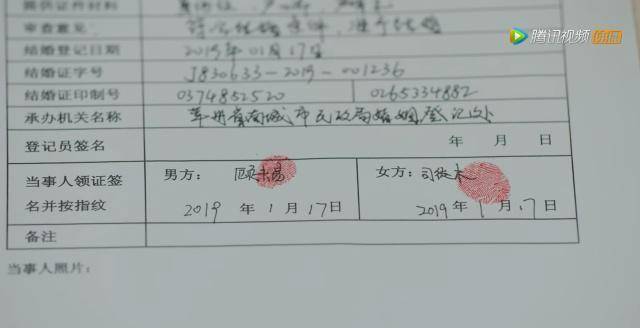 提供证件材料
腾讯视频
审查意见 符合结婚条件，准予结婚
结婚登记日期 2019年01月17日
结婚证字号 J830633-2019-001236
结婚证印制号 0374852520 0265334882
承办机关名称 省南城市民政局婚姻登记处
登记员签名 年 月 日
当事人领证签名并按指纹
男方： 顾未易 女方： 司徒末
2019 年 1 月 17 日 2019 年 1 月 17 日
备注
当事人照片：